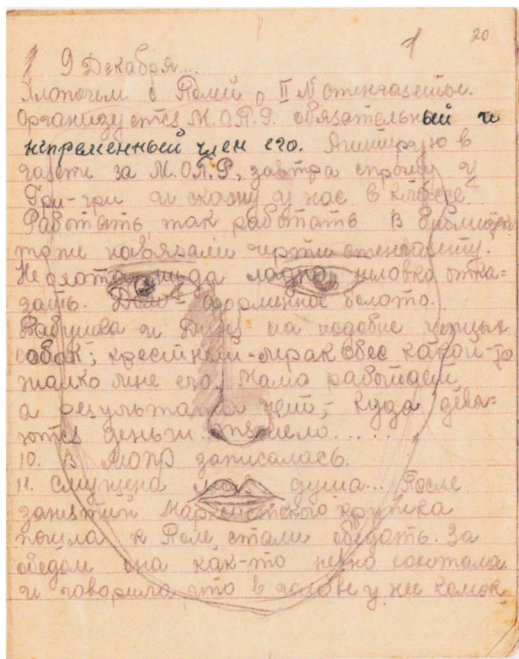 20
1
9 Декабря...
Хлопочем с Полей о II N стенгазеты.
Организуется М.О.П.Р. обязательный и
непременный член его. Агитирую в
газете за М.О.П.Р., завтра спрошу у
Гри-гри и скажу у нас в классе.
Работать так работать в библиотеке
тоже навязали черти стенгазету.
Не охота ну да ладно неловко отка=
зать. Дома форменное болото.
Бабушка и Дину на подобие цепных
собак; какой-то
жалко мне его. Мама работает,
а результата куда дева=
ются деньги
10. В МОПР записалась.
11. Смущена моя душа... После
занятий Марксистского кружка
пошла к Поле, стали обедать. За
обедом она как-то нервно хохотала
и говорила, что в голове у нее комок